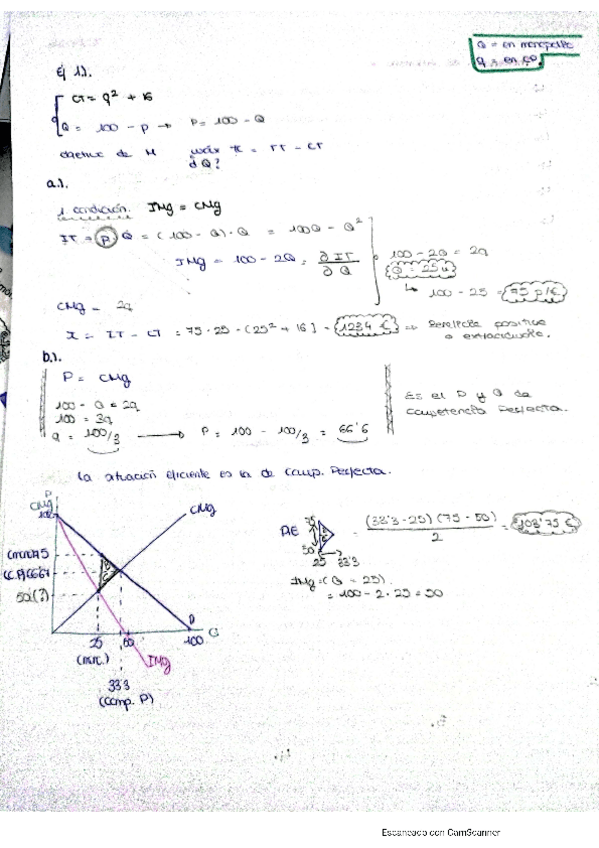 Q = en monopolio
q = en CP.
Ej 1).
CT = q² + 16
Q = 100 - P → P = 100 - Q
objetivo de M máx π = IT - CT
à Q?
a.).
1 condición. IMg = CMg
IT = P · Q = (100 - Q) · Q = 100Q - Q²
IMg = 100 - 2Q = ∂IT / ∂Q
100 - 2Q = 2q
Q = 25 u
↳ 100 - 25 = 75 p/€
CMg = 2q
π = IT - CT = 75 · 25 - (25² + 16) = 1234 € ⇒ Beneficio positivo
o extraordinario.
b.).
P = CMg
100 - Q = 2q
100 = 3q
q = 100/3 → P = 100 - 100/3 = 66'6
Es el P y Q de
Competencia Perfecta.
La situación eficiente es la de Comp. Perfecta.
P
CMg
100
CMg
(mon.) 75
(C.P) 66'67
50
25
50
100
Q
D
(mon.)
IMg
33'3
(Comp. P)
AE
75
50
25 33'3
= (33'3 - 25) (75 - 50) / 2 = 103'75 €
IMg = (Q = 25)
= 100 - 2 · 25 = 50
Escaneado con CamScanner